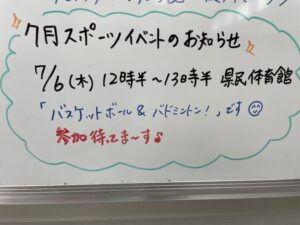 7月スポーツイベントのお知らせ
7/6(木) 12時半～13時半 県民体育館
「バスケットボール & バドミントン！」です
参加待ってま～す♪